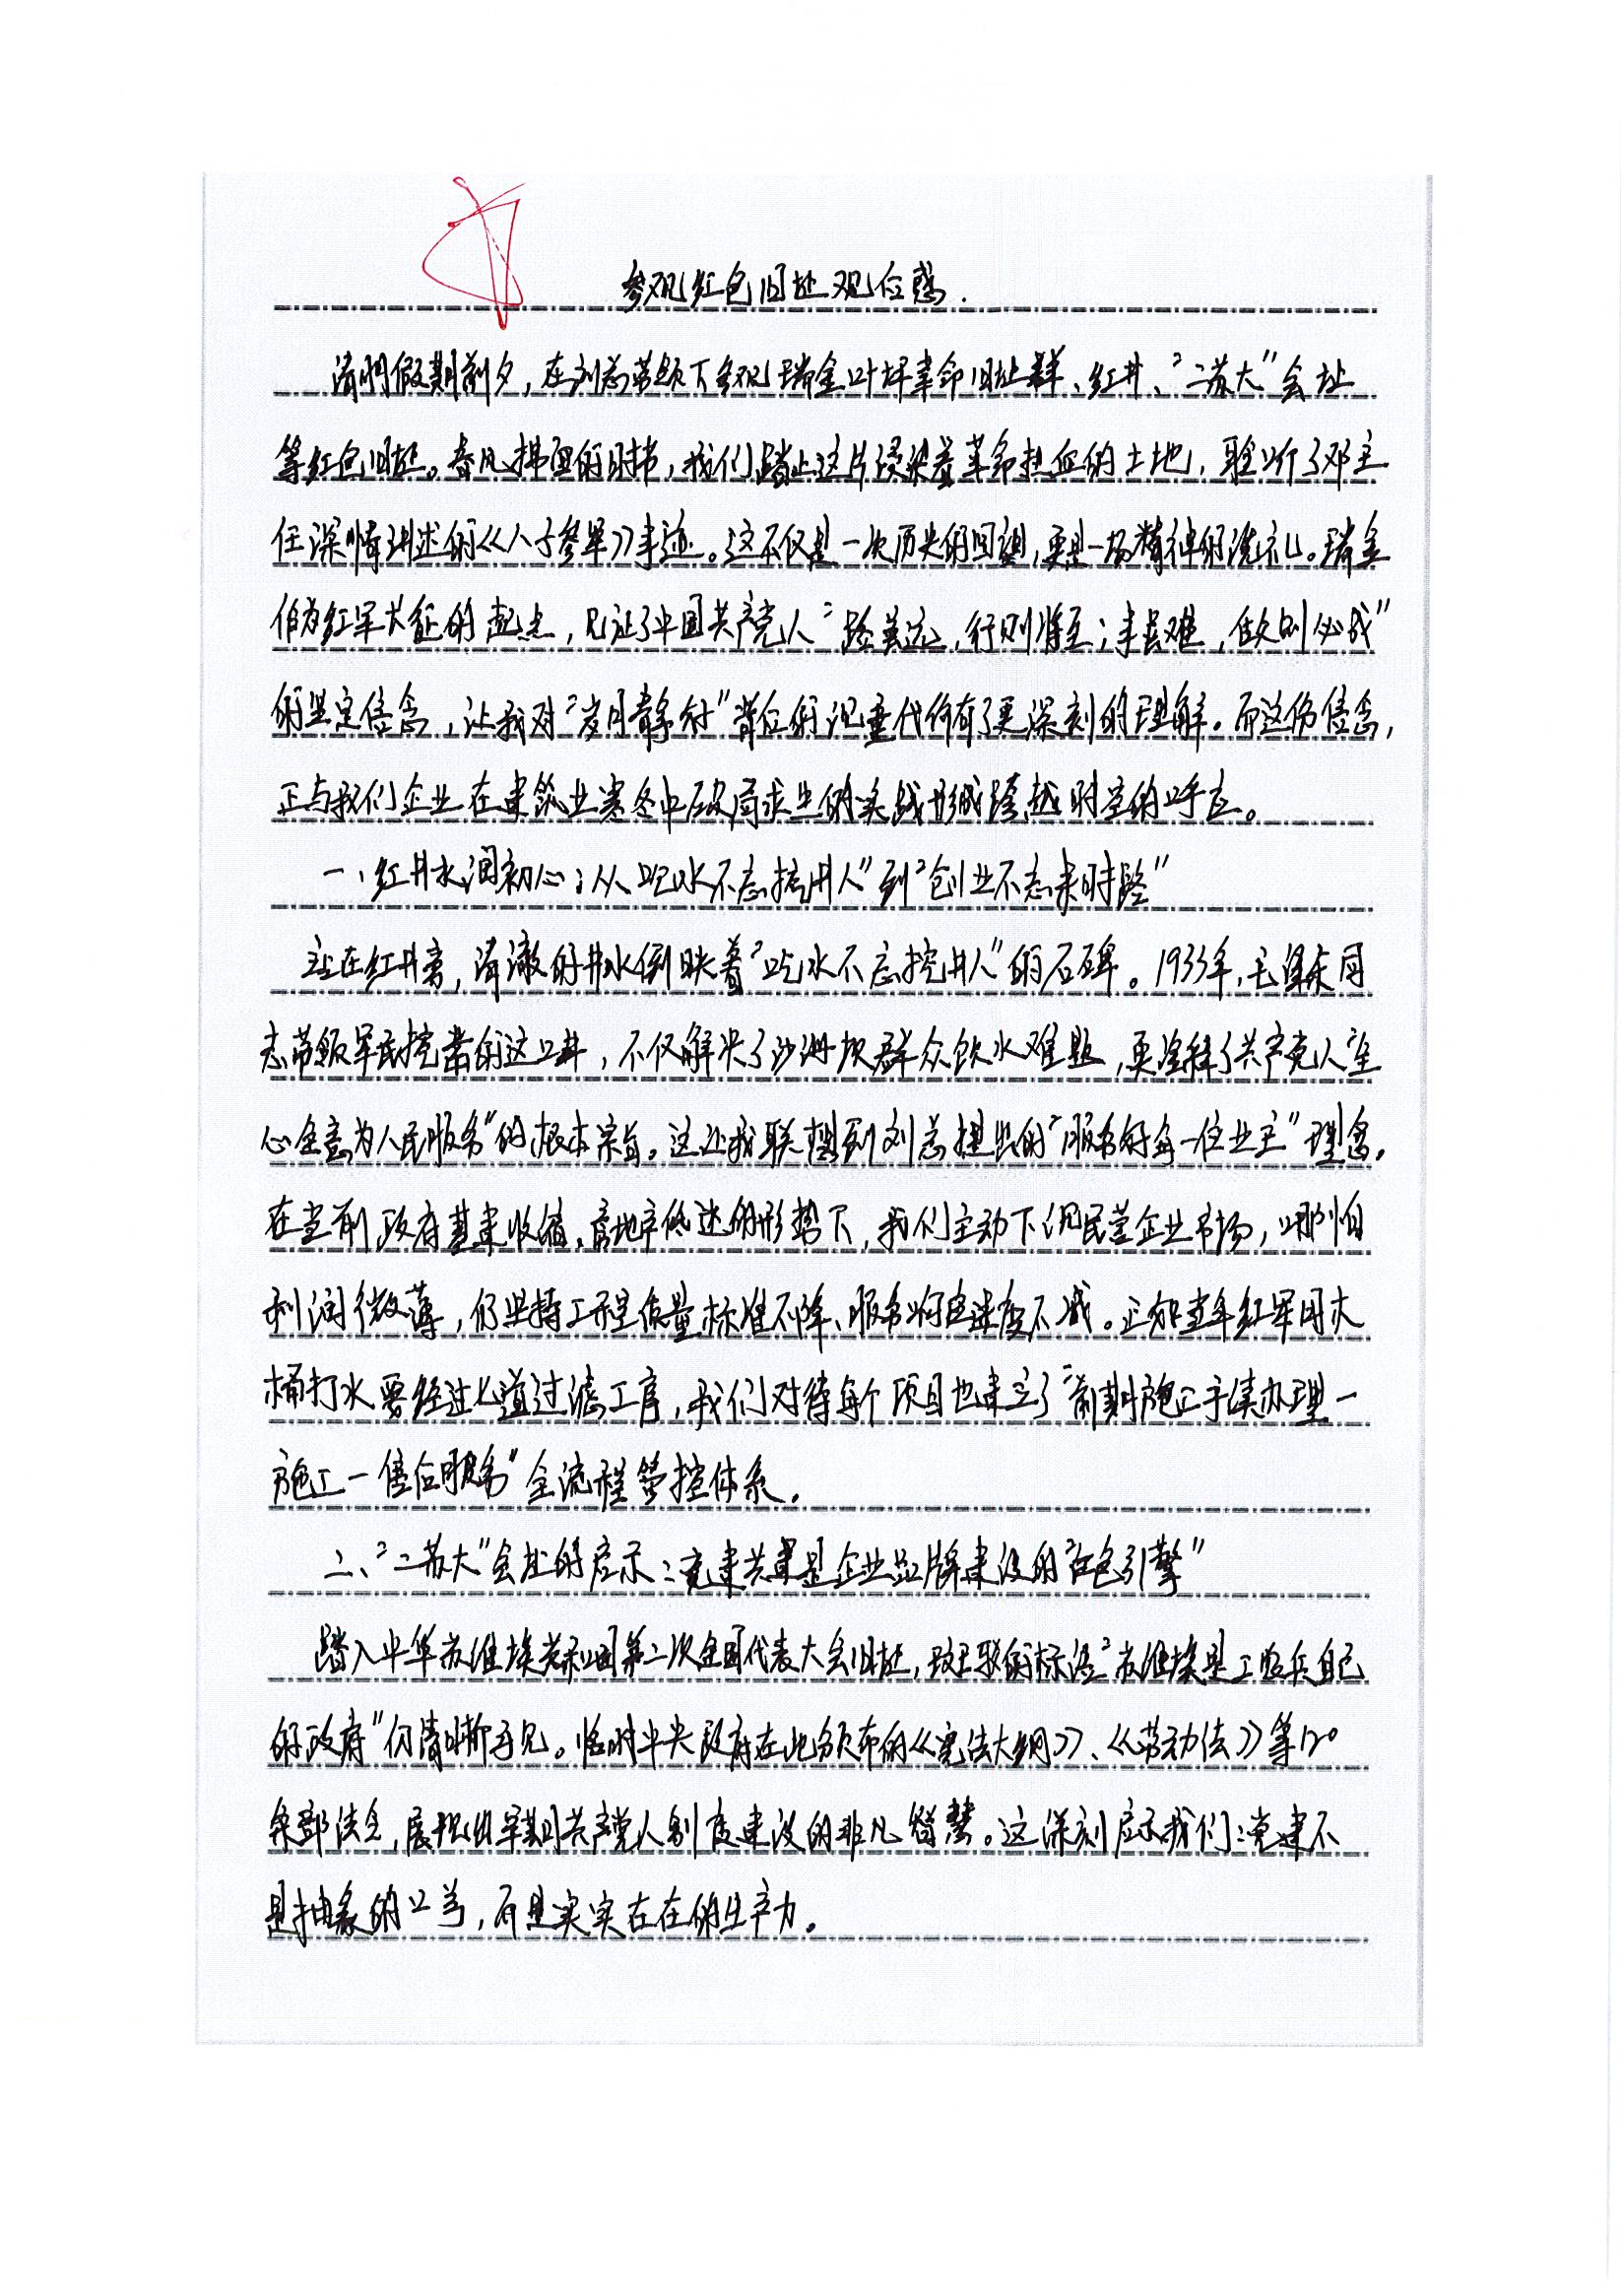 参观红色旧址观后感.
清明假期前夕，在刘总带领下参观瑞金叶坪革命旧址群、红井、“二苏大”会址
等红色旧址。春风拂面的时节，我们踏上这片浸染着革命热血的土地，聆听了邓主
任深情讲述的《八子参军》事迹。这不仅是一次历史的回溯，更是一场精神的洗礼。瑞金
作为红军长征的起点，见证了中国共产党人“路虽远，行则将至；事虽难，做则必成”
的坚定信念，让我对“岁月静好”背后的沉重代价有了更深刻的理解。而这份信念，
正与我们企业在建筑业寒冬中破局求生的实践形成跨越时空的呼应。
一、红井水润初心：从“吃水不忘挖井人”到“创业不忘来时路”
站在红井旁，清澈的井水倒映着“吃水不忘挖井人”的石碑。1933年，毛泽东同
志带领军民挖凿的这口井，不仅解决了沙洲坝群众饮水难题，更诠释了共产党人“全
心全意为人民服务”的根本宗旨。这让我联想到刘总提出的“服务好每一位业主”理念。
在当前政府基建收缩、房地产低迷的形势下，我们主动下沉民营企业市场，哪怕
利润微薄，仍坚持工程质量标准不降、服务响应速度不减。正如当年红军用木
桶打水要经过七道过滤工序，我们对待每个项目也建立了“前期施工手续办理一
施工一售后服务”全流程管控体系。
二、“二苏大”会址的启示：党建共建是企业品牌建设的“红色引擎”
踏入中华苏维埃共和国第二次全国代表大会旧址，斑驳的标语“苏维埃是工农兵自己
的政府”仍清晰可见。临时中央政府在此颁布的《宪法大纲》、《劳动法》等120
余部法令，展现出早期共产党人制度建设的非凡智慧。这深刻启示我们：党建不
是抽象的口号，而是实实在在的生产力。